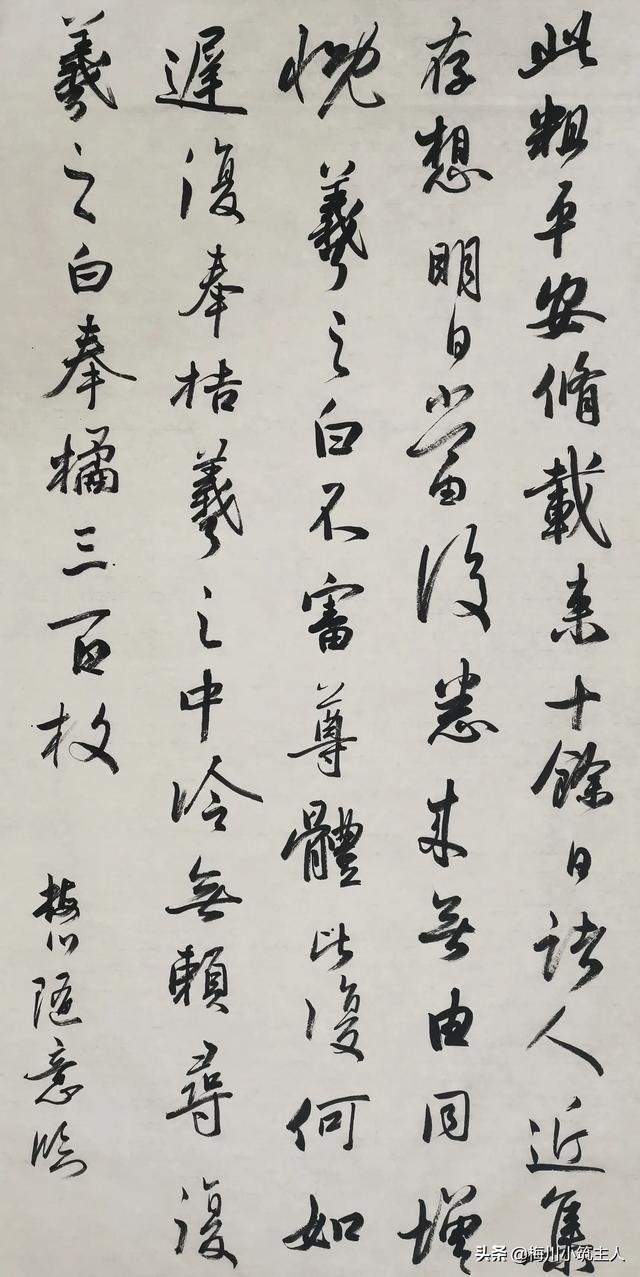 此粗平安脩載来十餘日諸人近集
存想明日當復悉来無由同增
慨羲之白不審尊體比復何如
遲復奉桔羲之中冷無賴尋復
羲之白奉橘三百枚
梅川隨意臨
头条 @梅川小筑主人